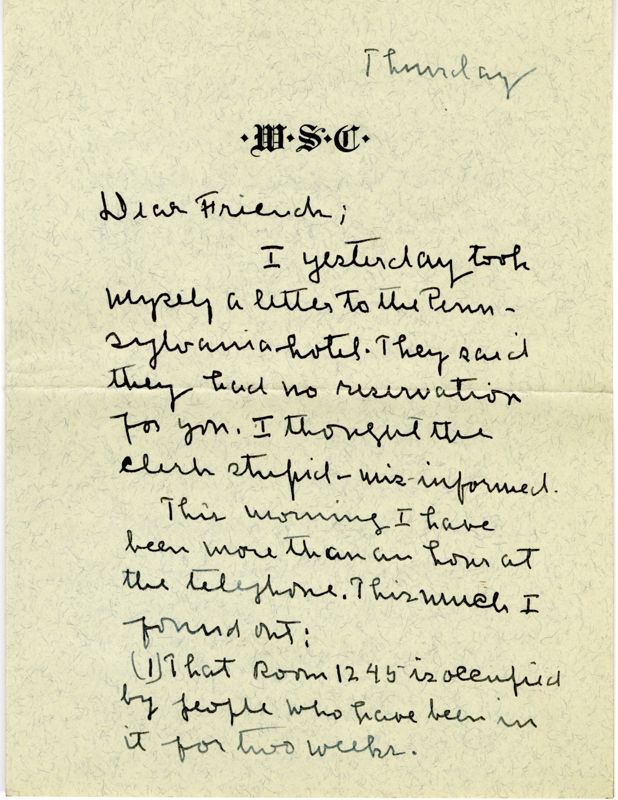 Thursday
·W·S·C·
Dear Friend;
I yesterday took
myself a letter to the Penn-
sylvania hotel. They said
they had no reservation
for you. I thought the
clerk stupid - mis-informed.
This morning I have
been more than an hour at
the telephone. This much I
found out:
(1) That Room 1245 is occupied
by people who have been in
it for two weeks.